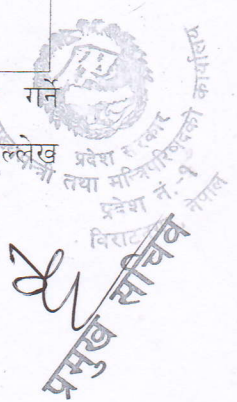 गर्ने
ल्लेख
प्रदेश सरकार
मुख्यमन्त्री तथा मन्त्रिपरिषद्को कार्यालय
प्रदेश नं. १
विराटनगर, नेपाल
प्रमुख सचिव